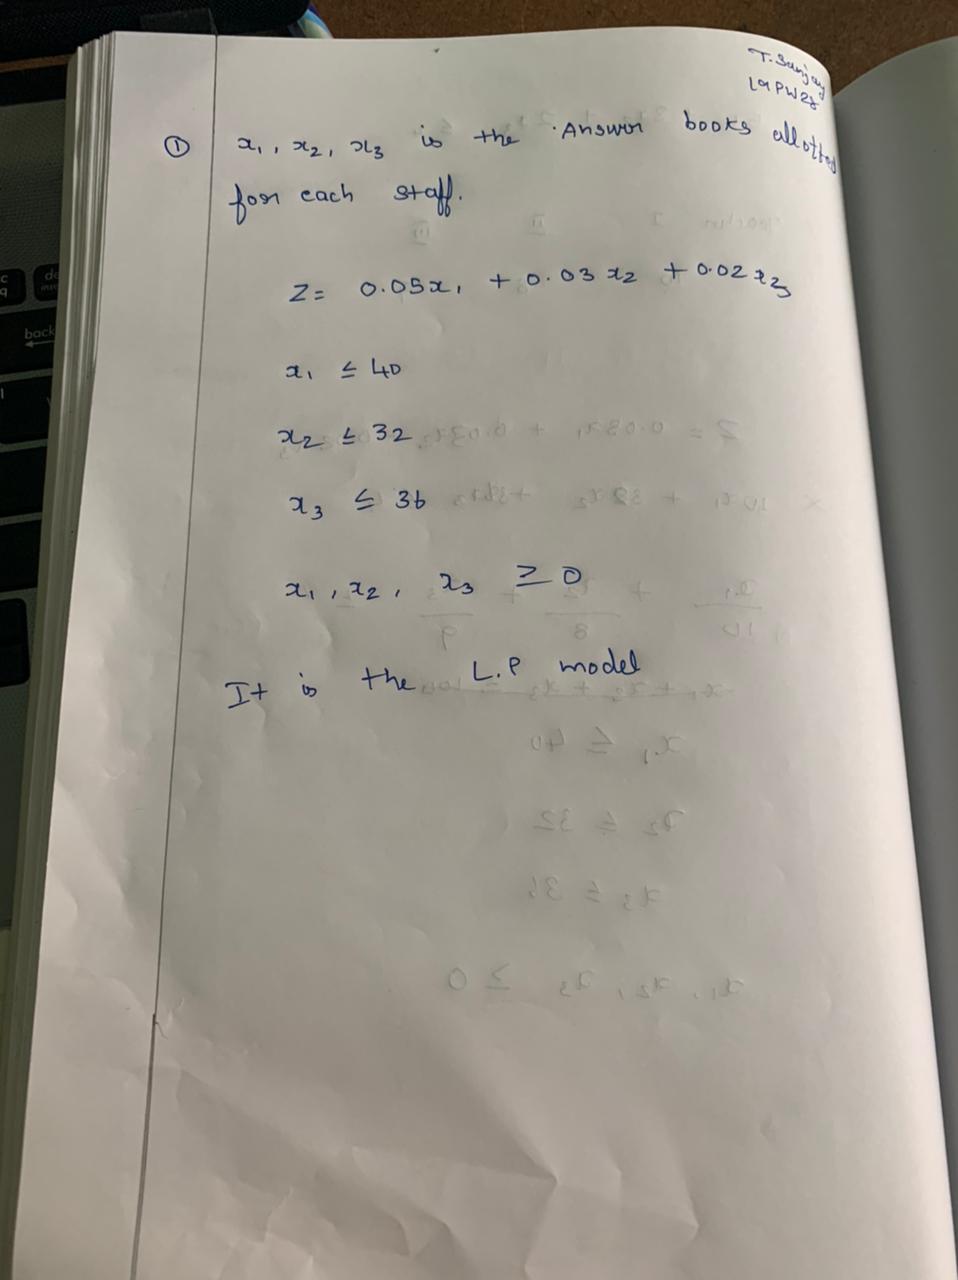 T. Sanjay
19PW28
① x₁, x₂, x₃ is the Answer books allotted
for each staff.
Z = 0.05x₁ + 0.03 x₂ + 0.02 x₃
x₁ ≤ 40
x₂ ≤ 32
x₃ ≤ 36
x₁, x₂, x₃ ≥ 0
It is the L.P model